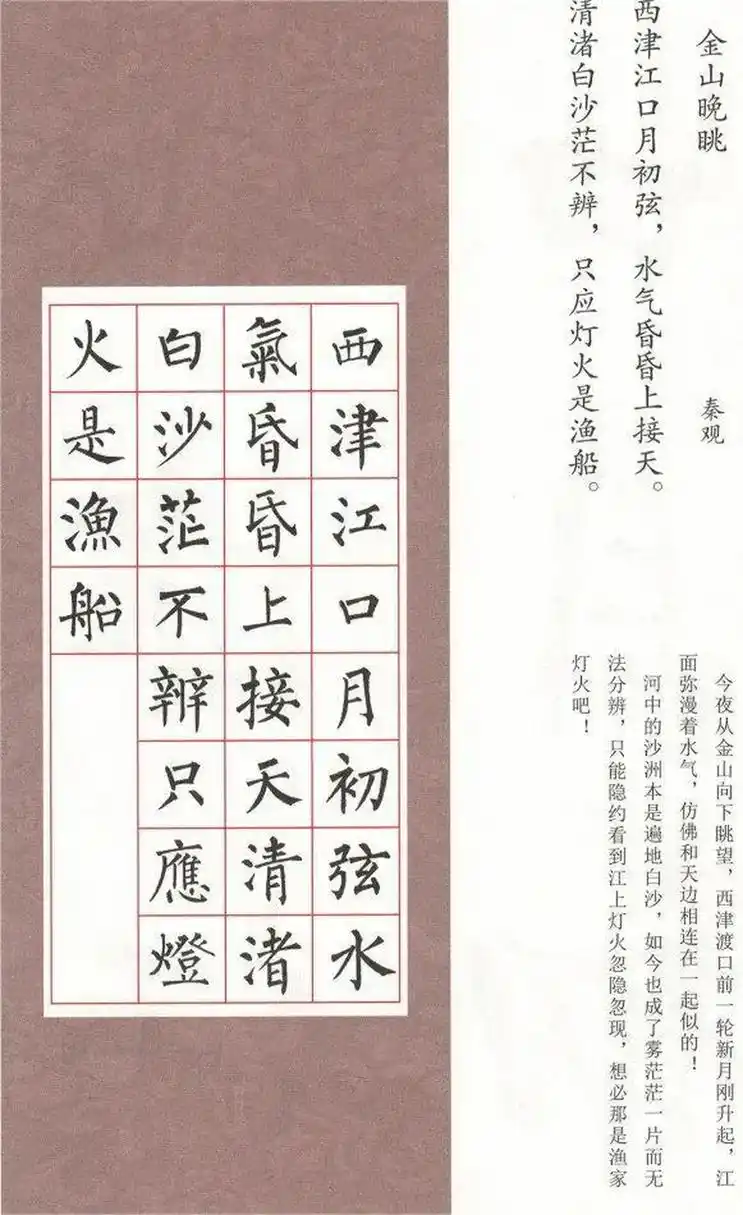 金山晚眺
秦观
西津江口月初弦，水气昏昏上接天。
清渚白沙茫不辨，只应灯火是渔船。
今夜从金山向下眺望，西津渡口前一轮新月刚升起，江
面弥漫着水气，仿佛和天边相连在一起似的！
河中的沙洲本是遍地白沙，如今也成了雾茫茫一片而无
法分辨，只能隐约看到江上灯火忽隐忽现，想必那是渔家
灯火吧！
西津江口月初弦水
氣昏昏上接天清渚
白沙茫不辨只應燈
火是漁船